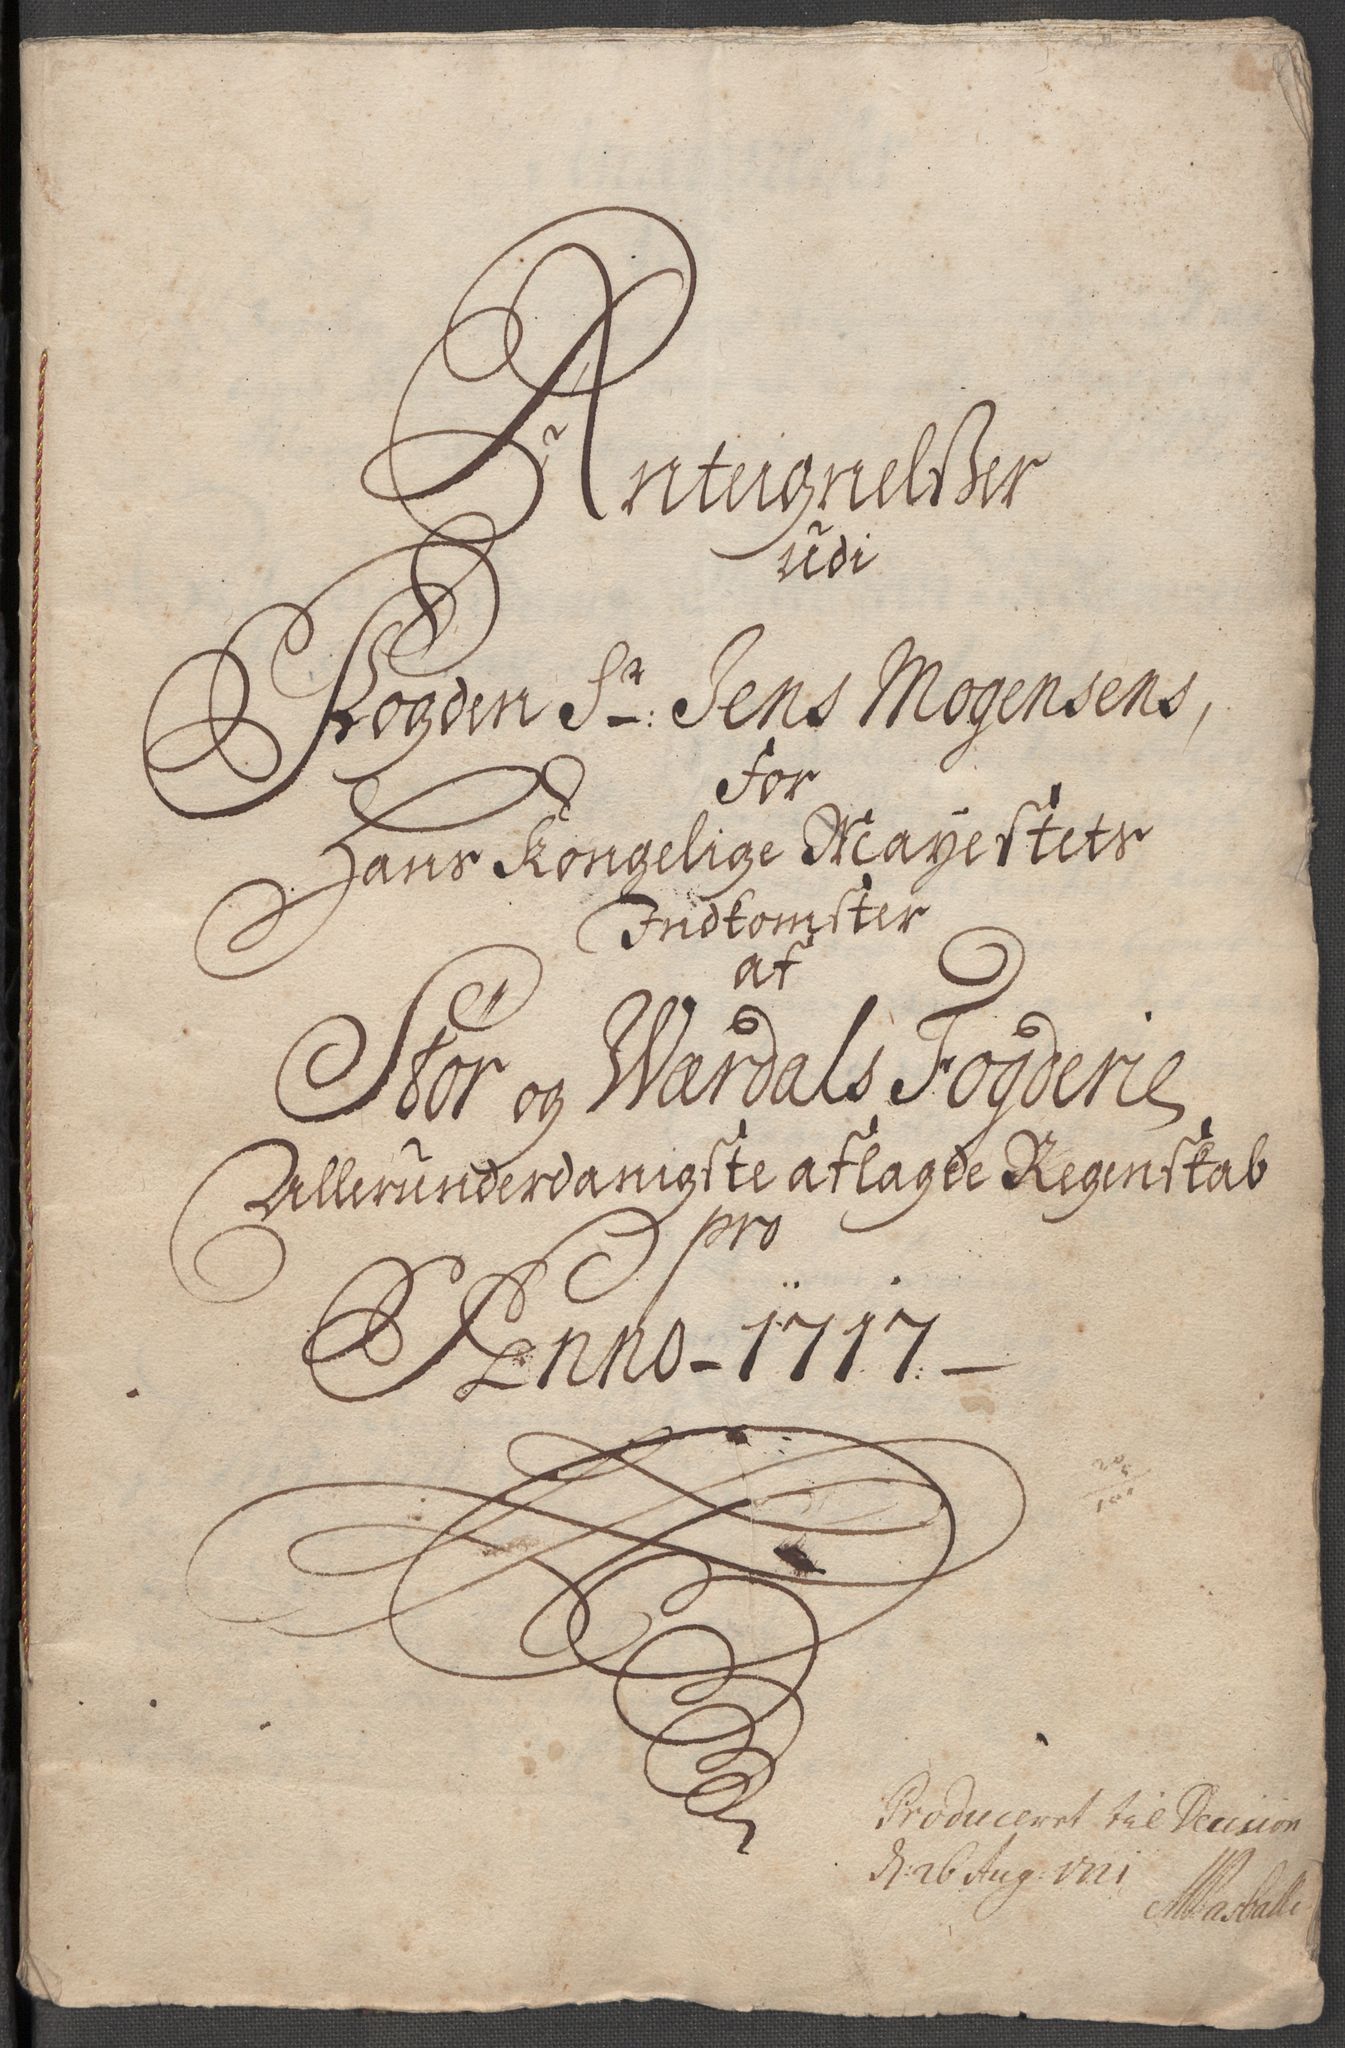 Anteignelßer
udi
Fogden Sr. Jens Mogensens,
for
Hans Kongelige Mayestets
Indkomster
af
Stør og Wærdals Fogderie
Allerunderdanigste aflagde Regenskab
pro
Anno - 1717 -
Produceret til Decision
d: 26 Aug: 1721